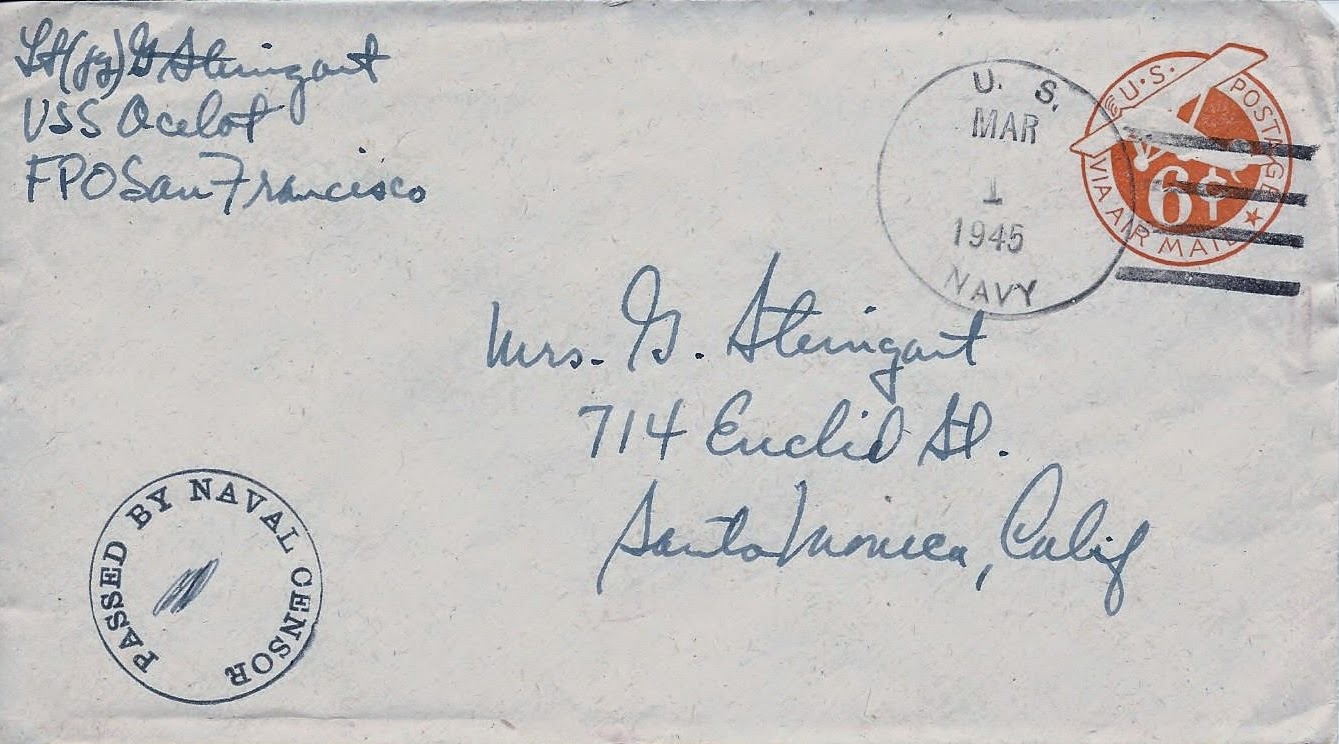 Lt(jg) G Steingart
USS Ocelot
FPO San Francisco
U. S.
MAR
1
1945
NAVY
U.S. POSTAGE
6¢
VIA AIR MAIL
Mrs. G. Steingart
714 Euclid St.
Santa Monica, Calif
PASSED BY NAVAL CENSOR